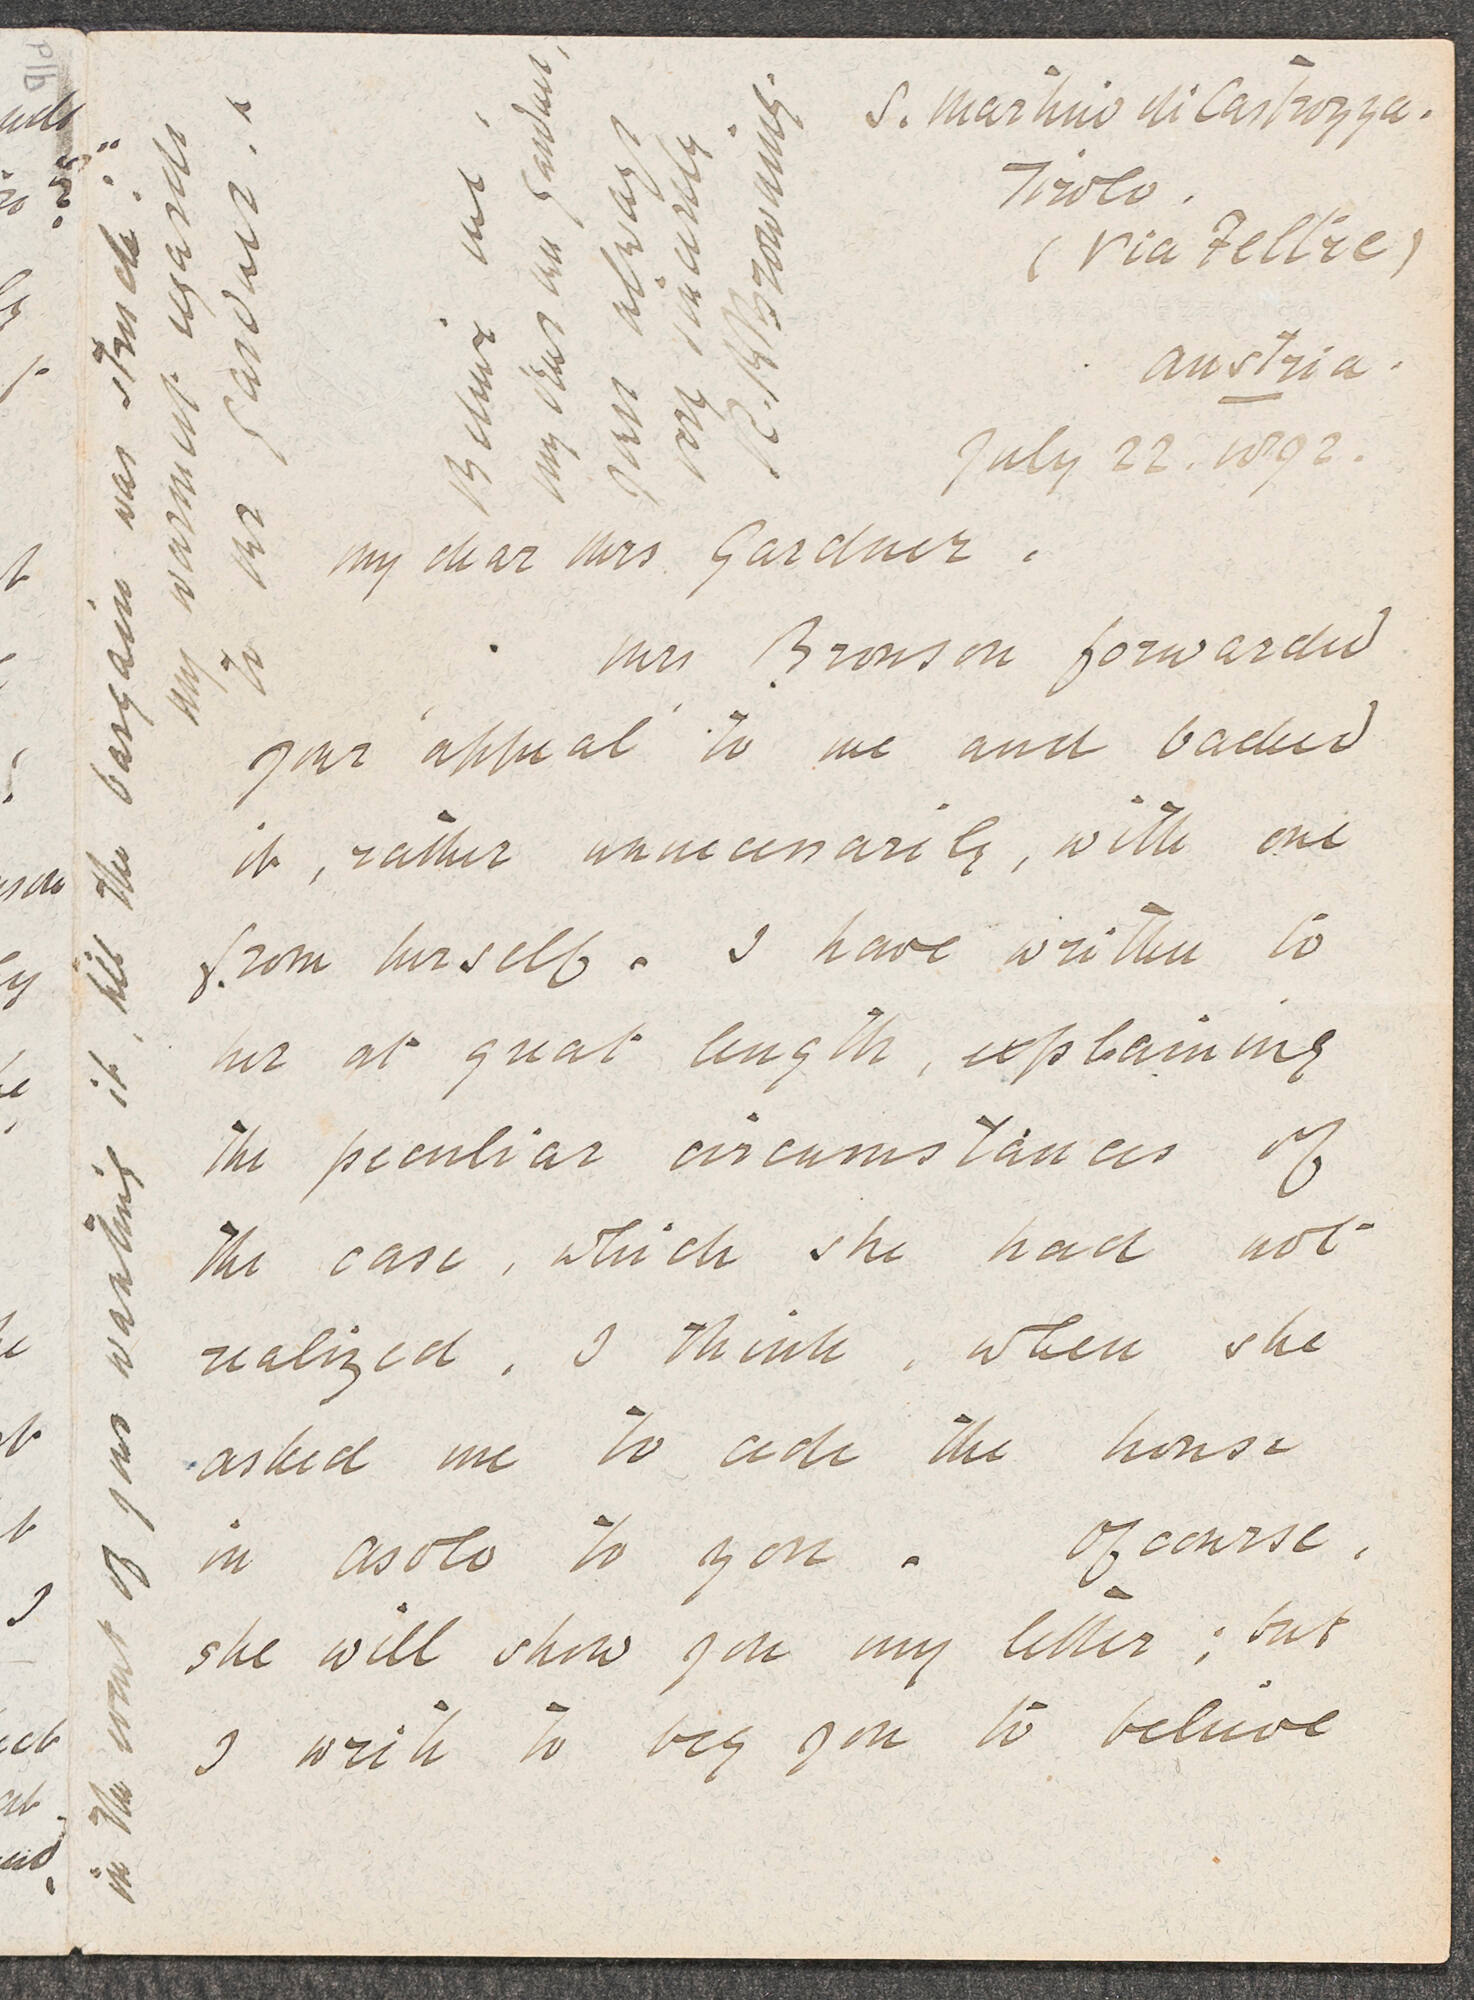 S. Martino di Castrozza.
Tirolo.
(Via Feltre)
Austria.
July 22. 1892.
My dear Mrs Gardner.
Mrs Bronson forwarded
your 'appeal' to me and backed
it, rather unnecessarily, with one
from herself. I have written to
her at great length, explaining
the peculiar circumstances of
the case, which she had not
realized, I think, when she
asked me to cede the house
in Asolo to you. Of course,
she will show you my letter; but
I write to beg you to believe
in the event of your wanting it, till the bargain was struck."
my warmest regards
to Mr Gardner.
Believe me,
my dear Mrs Gardner,
yours always
very sincerely
R. B. Browning.